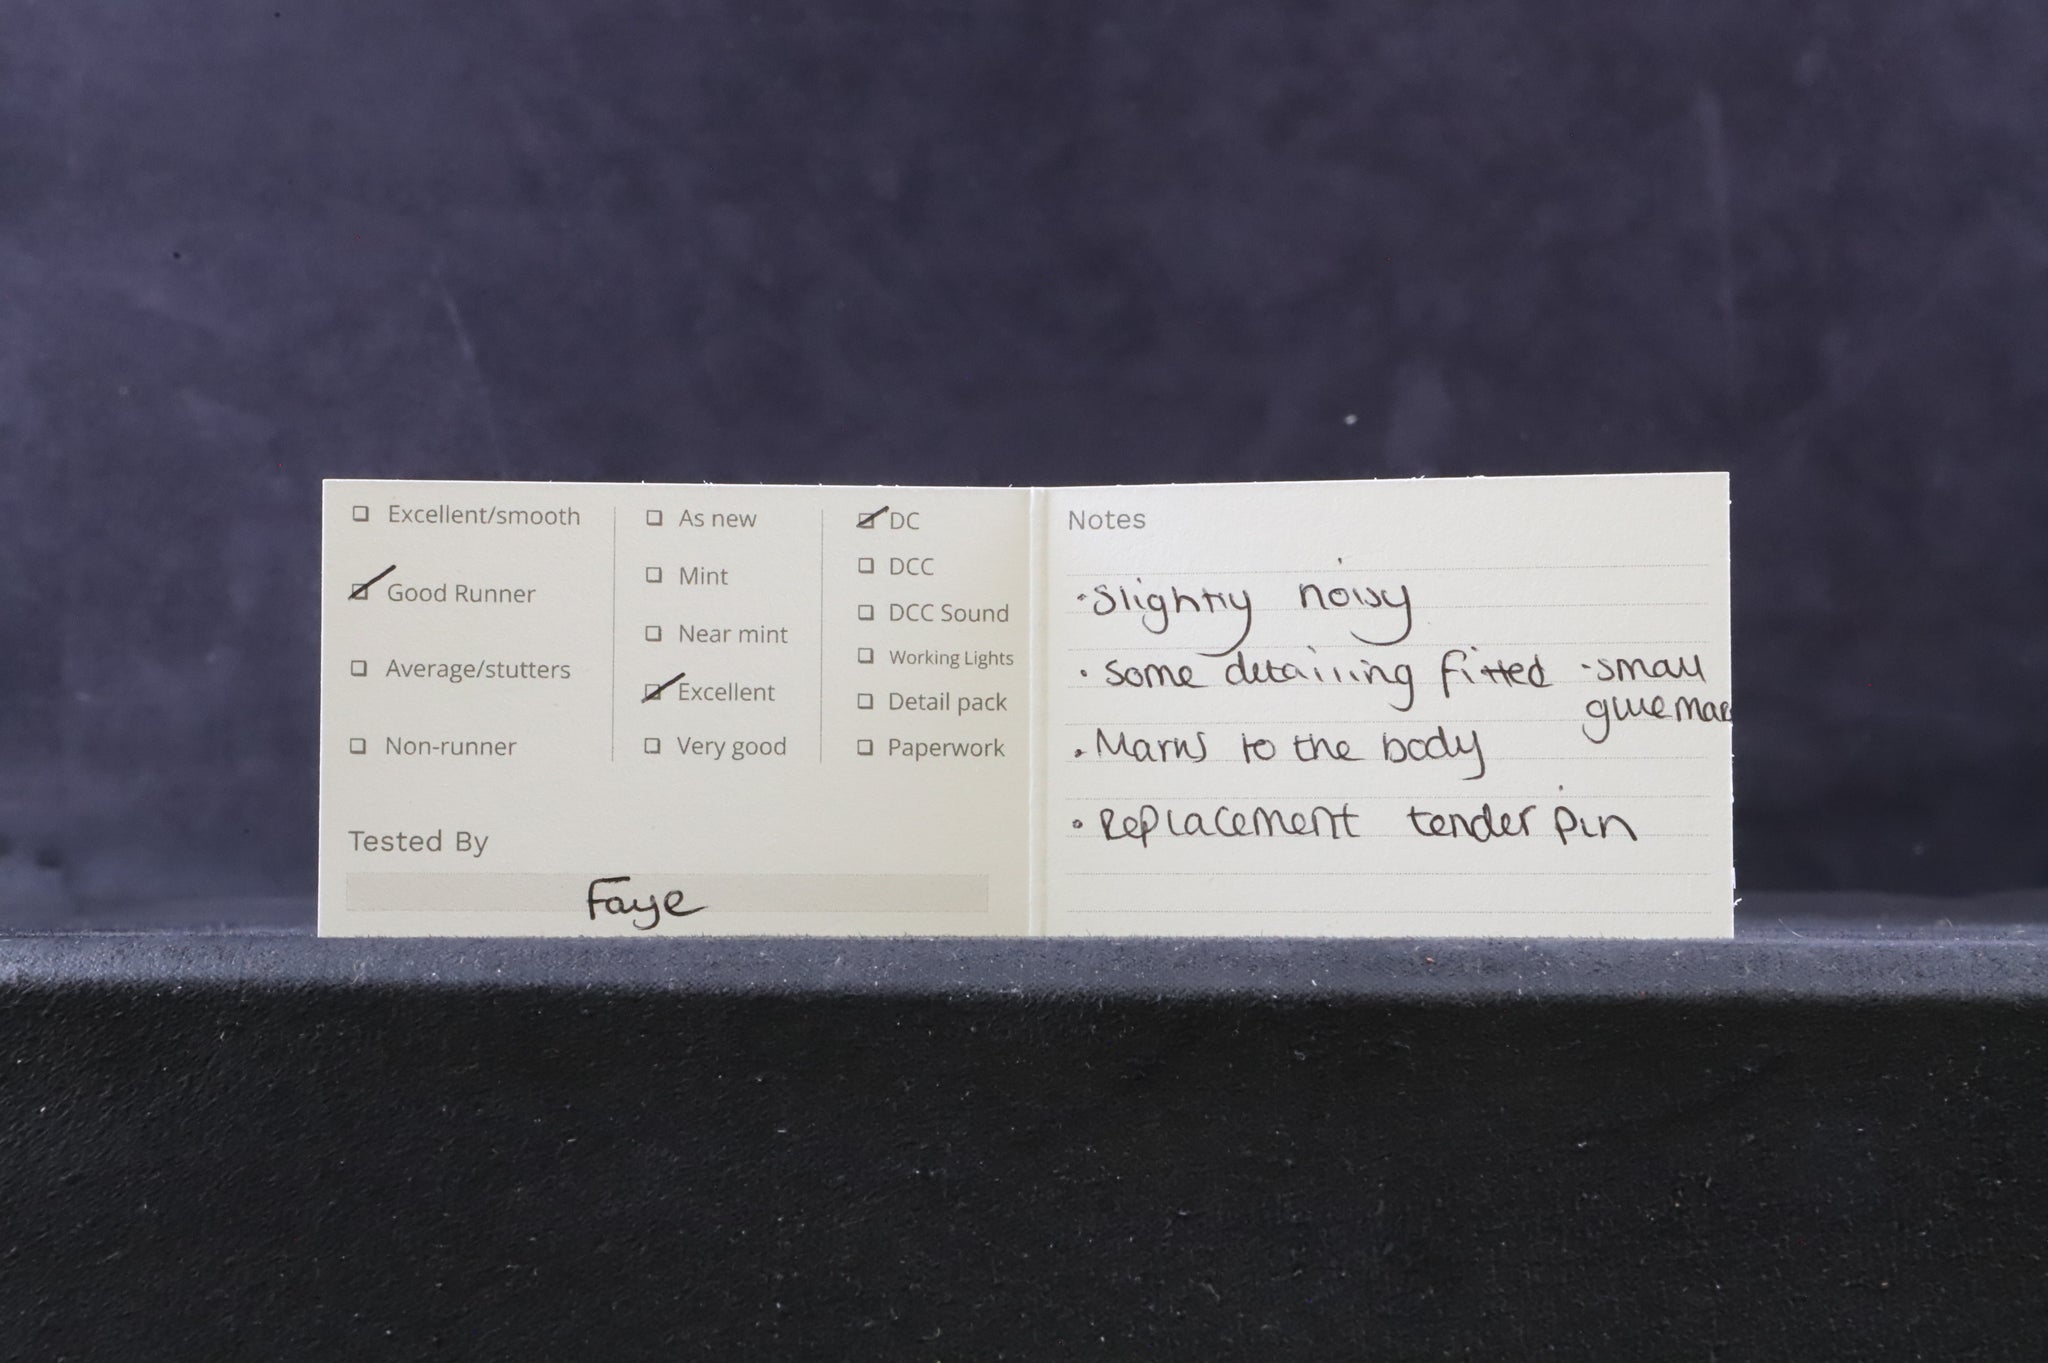 Excellent/smooth
Good Runner
Average/stutters
Non-runner
As new
Mint
Near mint
Excellent
Very good
DC
DCC
DCC Sound
Working Lights
Detail pack
Paperwork
Tested By
Faye
Notes
• Slightly noisy
• some detailing fitted • small
glue mar
• Marks to the body
• Replacement tender pin